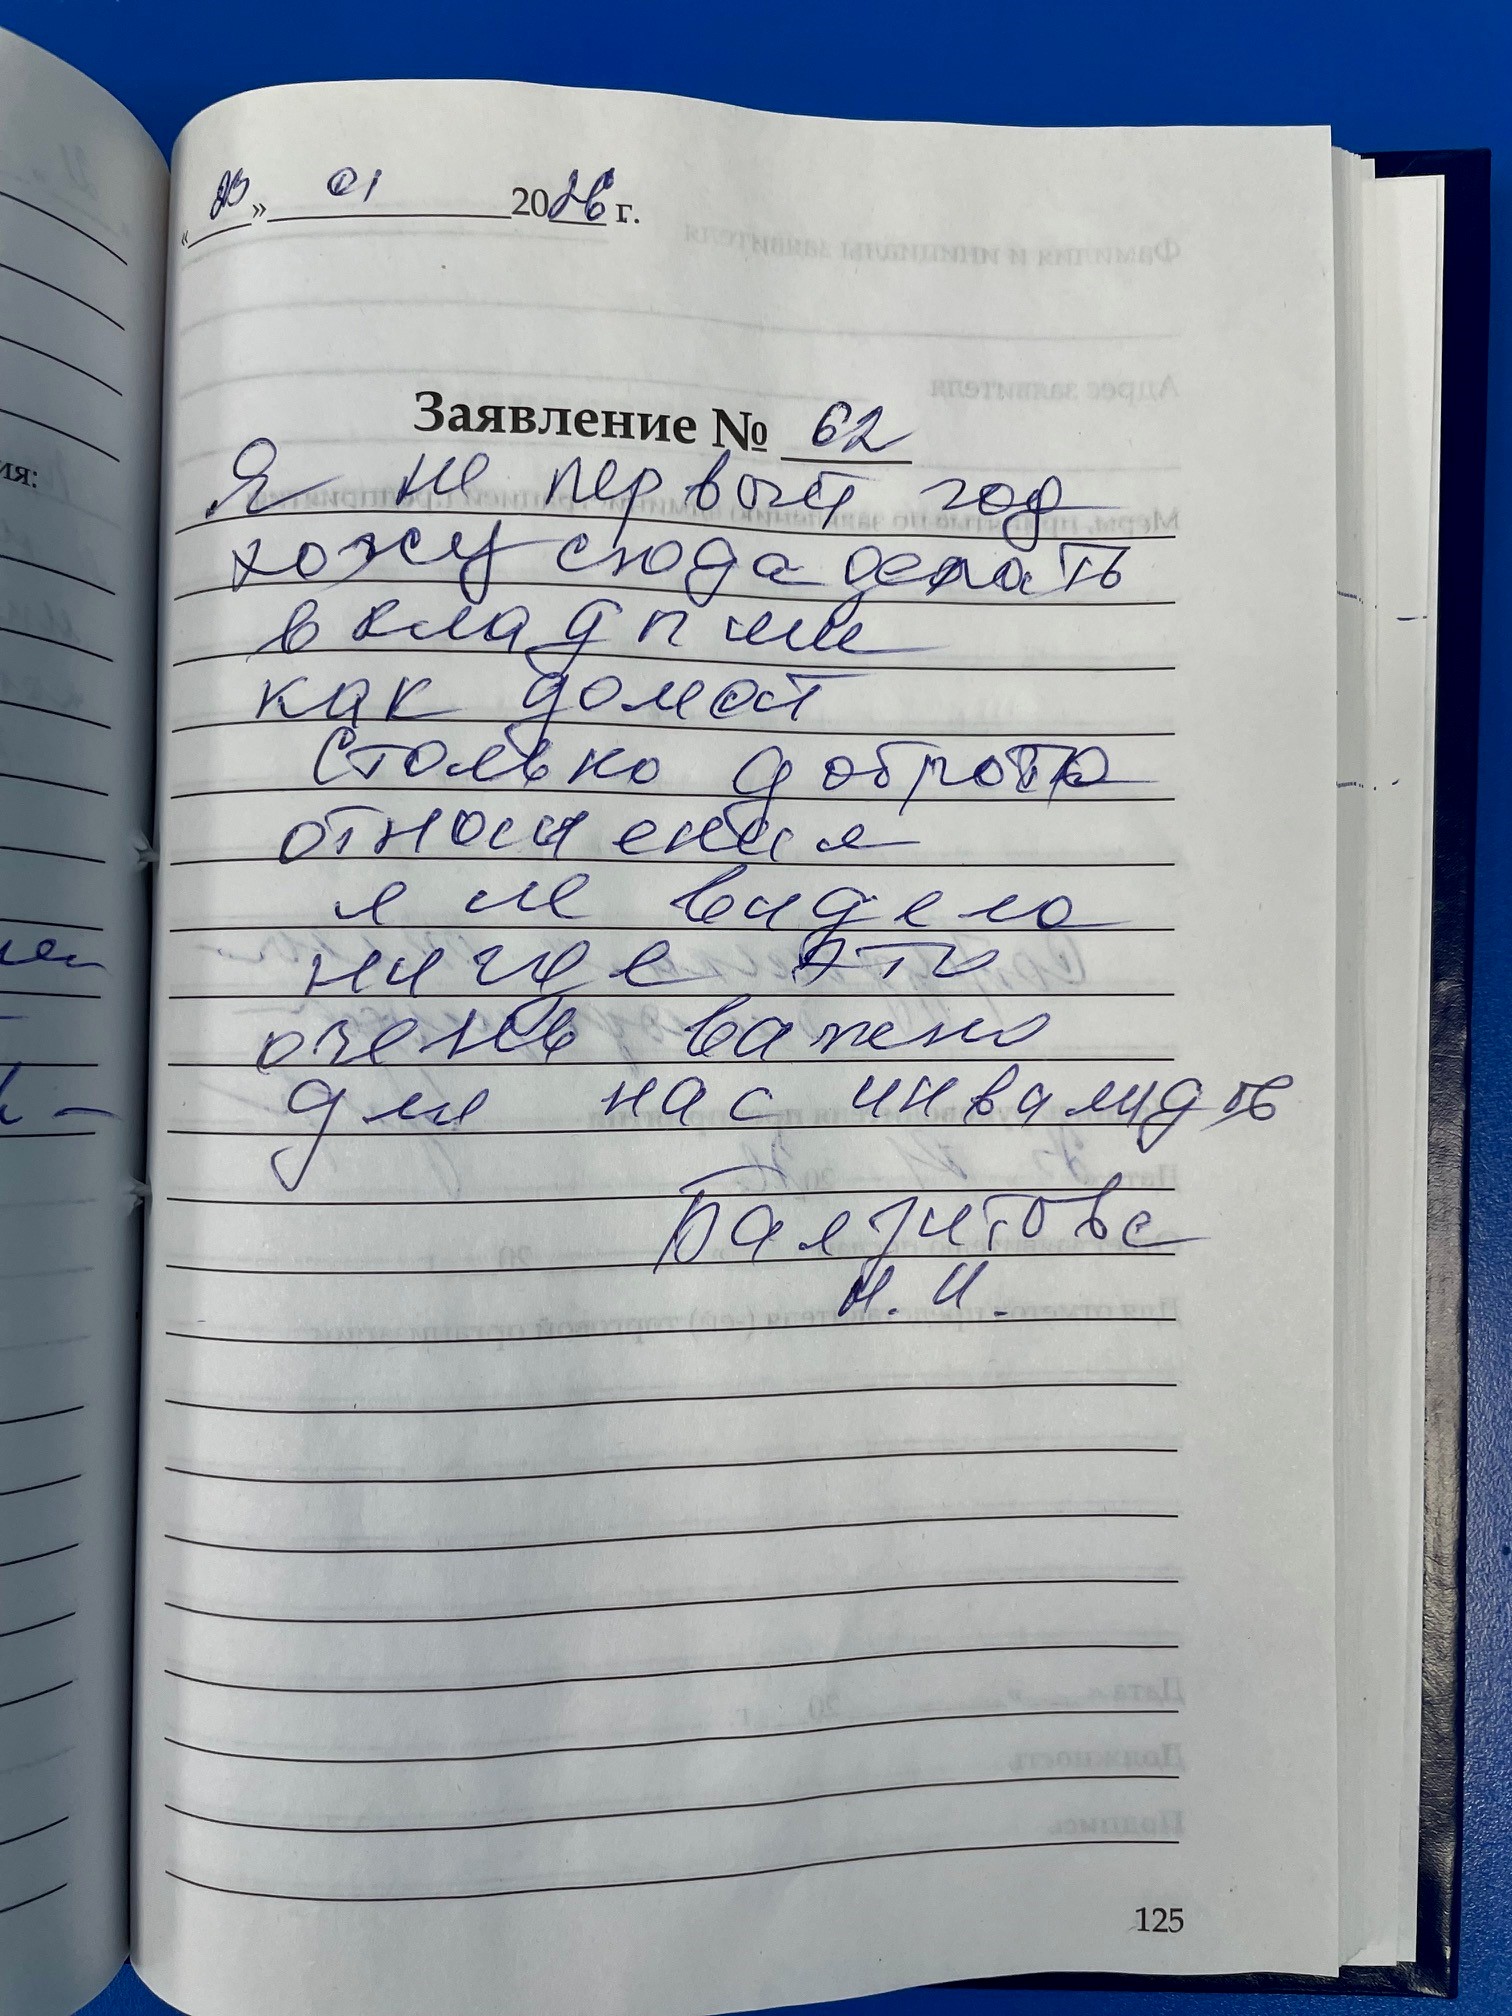 «23» 01 2026 г.
Заявление № 62
Я не первый год
хожу сюда делать
вкладыши
как домой
столько доброта
отношения
я не видела
нигде это
очень важно
для нас инвалидов
Н. И.
125